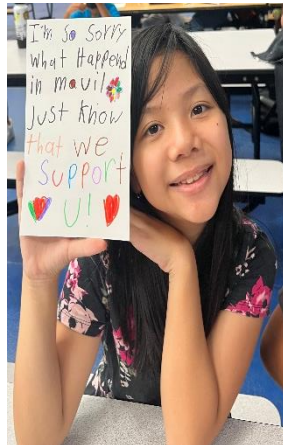 I'm So Sorry
What Happend
in mauil
Just know
that we
support
U!